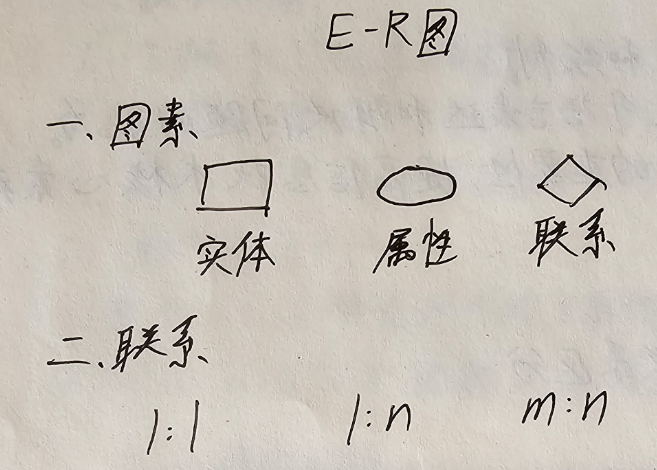 E-R图
一、图素
实体 属性 联系
二、联系
1:1 1:n m:n